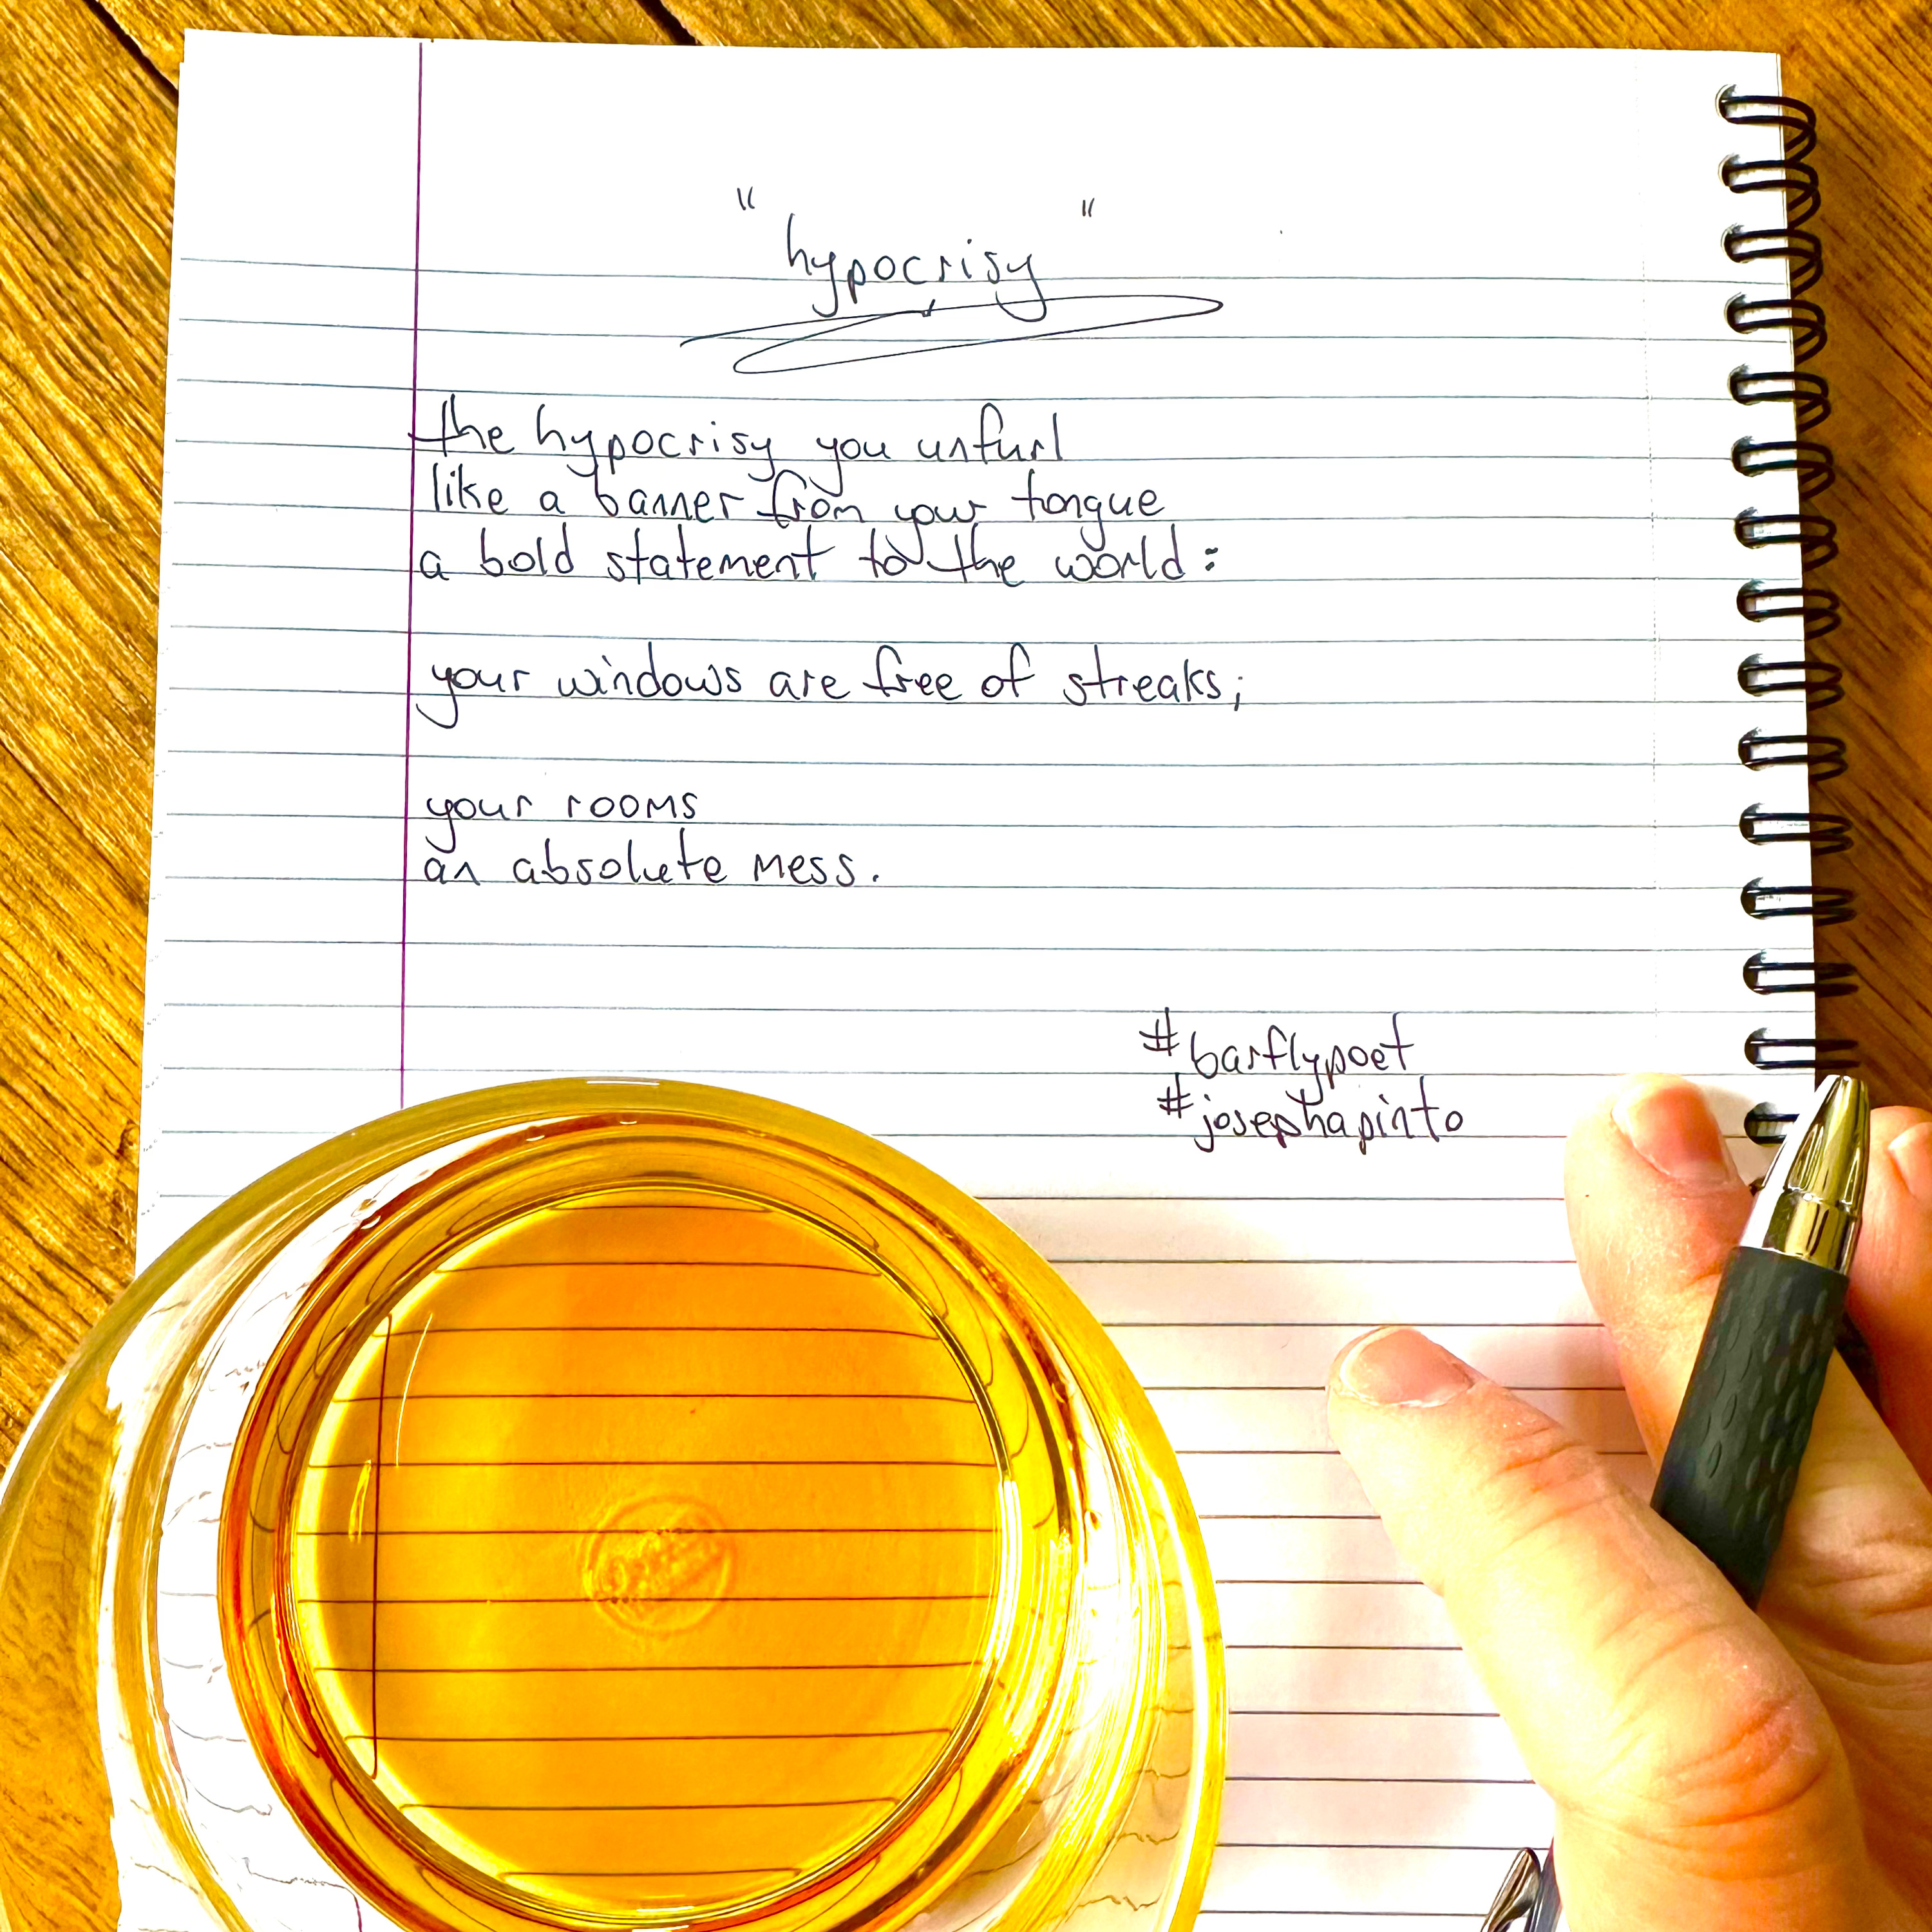 "hypocrisy"
the hypocrisy you unfurl
like a banner from your tongue
a bold statement to the world:
your windows are free of streaks;
your rooms
an absolute mess.
#barflypoet
#josephapinto